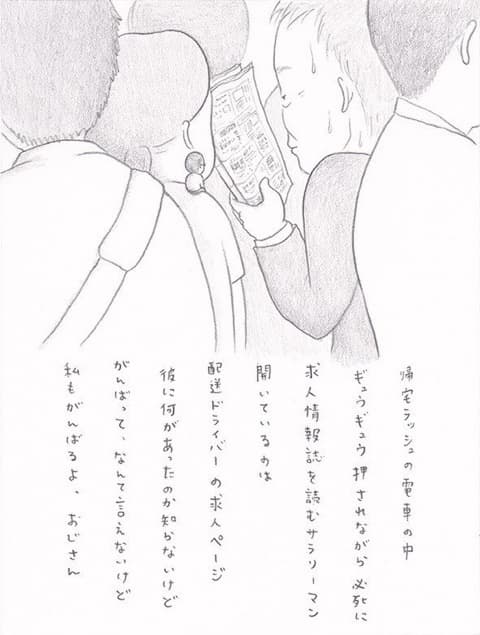 帰宅ラッシュの電車の中
ギュウギュウ押されながら必死に
求人情報誌を読むサラリーマン
開いているのは
配送ドライバーの求人ページ
彼に何があったのか知らないけど
がんばって、なんて言えないけど
私もがんばるよ、おじさん